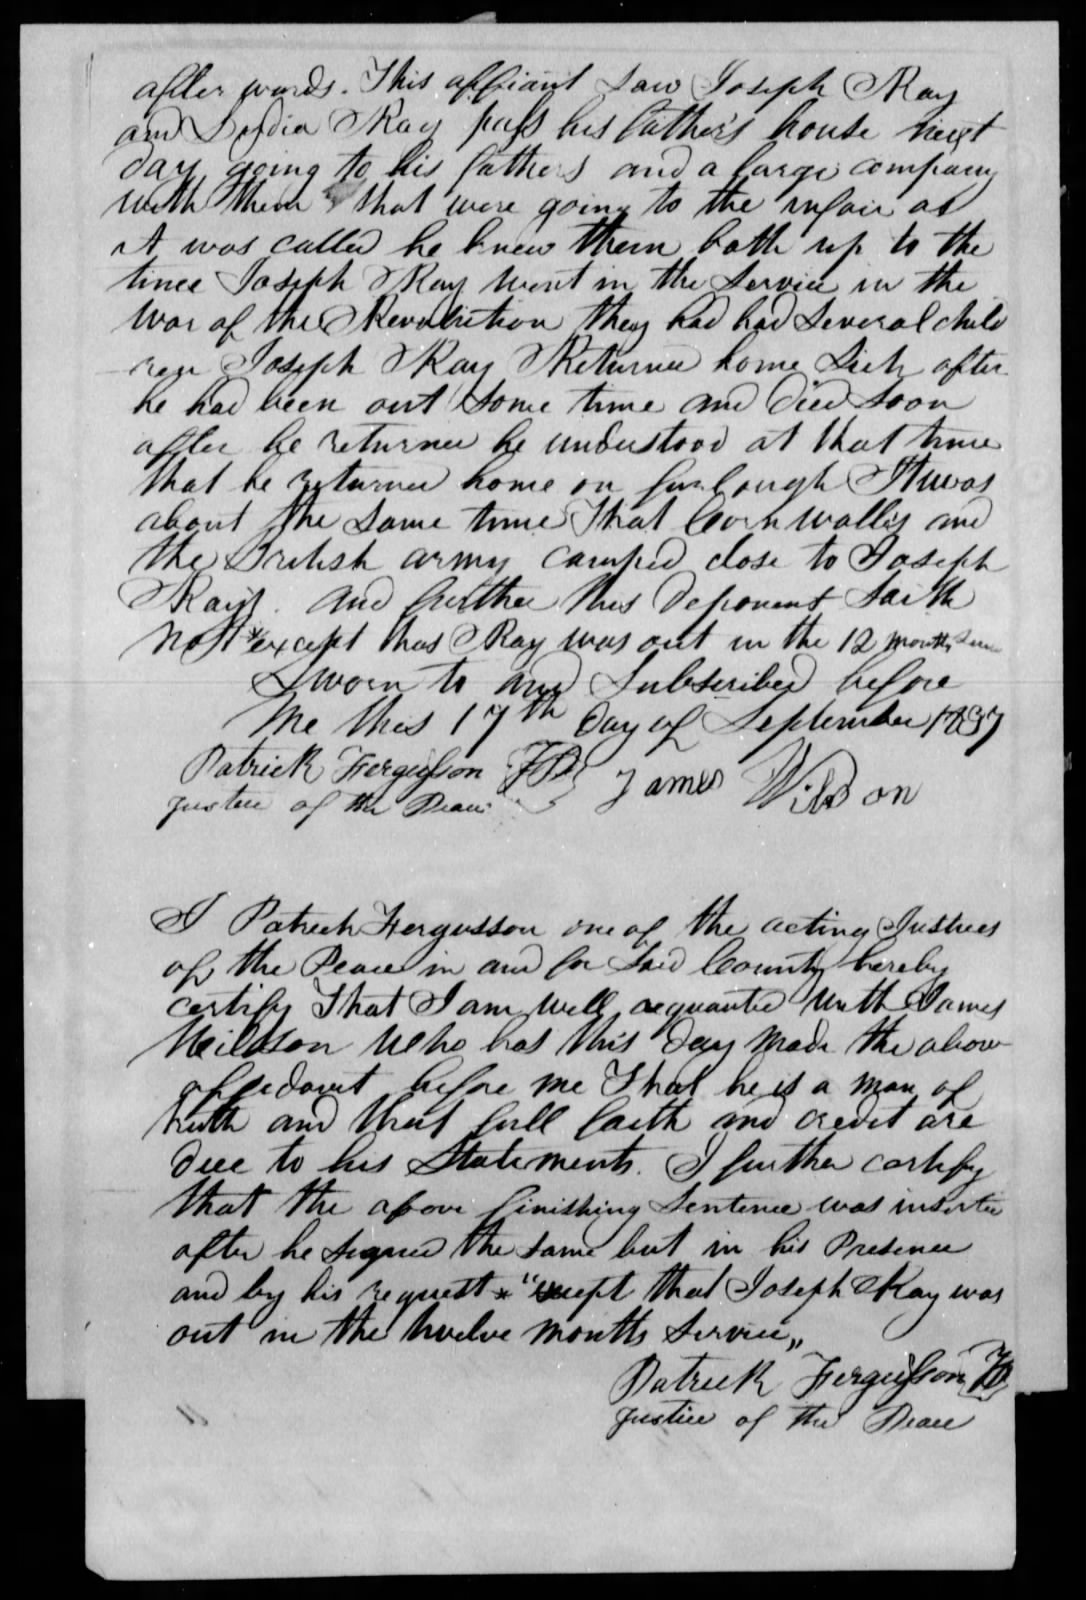 after words. This affiant Saw Joseph Ray
and Lydia Ray pass his fathers house next
day going to his fathers and a large company
with them that were going to the infair as
it was called he knew them both up to the
time Joseph Ray went in the Service in the
War of the Revolution they had had Several child
ren Joseph Ray Returned home Sick after
he had been out Some time and died Soon
after he returned he understood at that time
that he returned home on furlough It was
about the Same time That Cornwallis and
the British army camped close to Joseph
Rays. and further this Deponent Saith
not * except that Ray was out in the 12 months
Sworn to and Subscribed before
me this 17th day of September 1837
Patrick Fergusson JP James Wilson
Justice of the Peace
I Patrick Fergusson one of the acting Justices
of the Peace in and for Said County hereby
certify That I am well acquanted with James
Wilson who has this day made the above
affedavit before me That he is a man of
truth and that full faith and credit are
due to his Statements. I further certify
that the above finishing Sentence was inserted
after he signed the same but in his Presence
and by his request * "except that Joseph Ray was
out in the twelve months Service"
Patrick Fergusson JP
Justice of the Peace